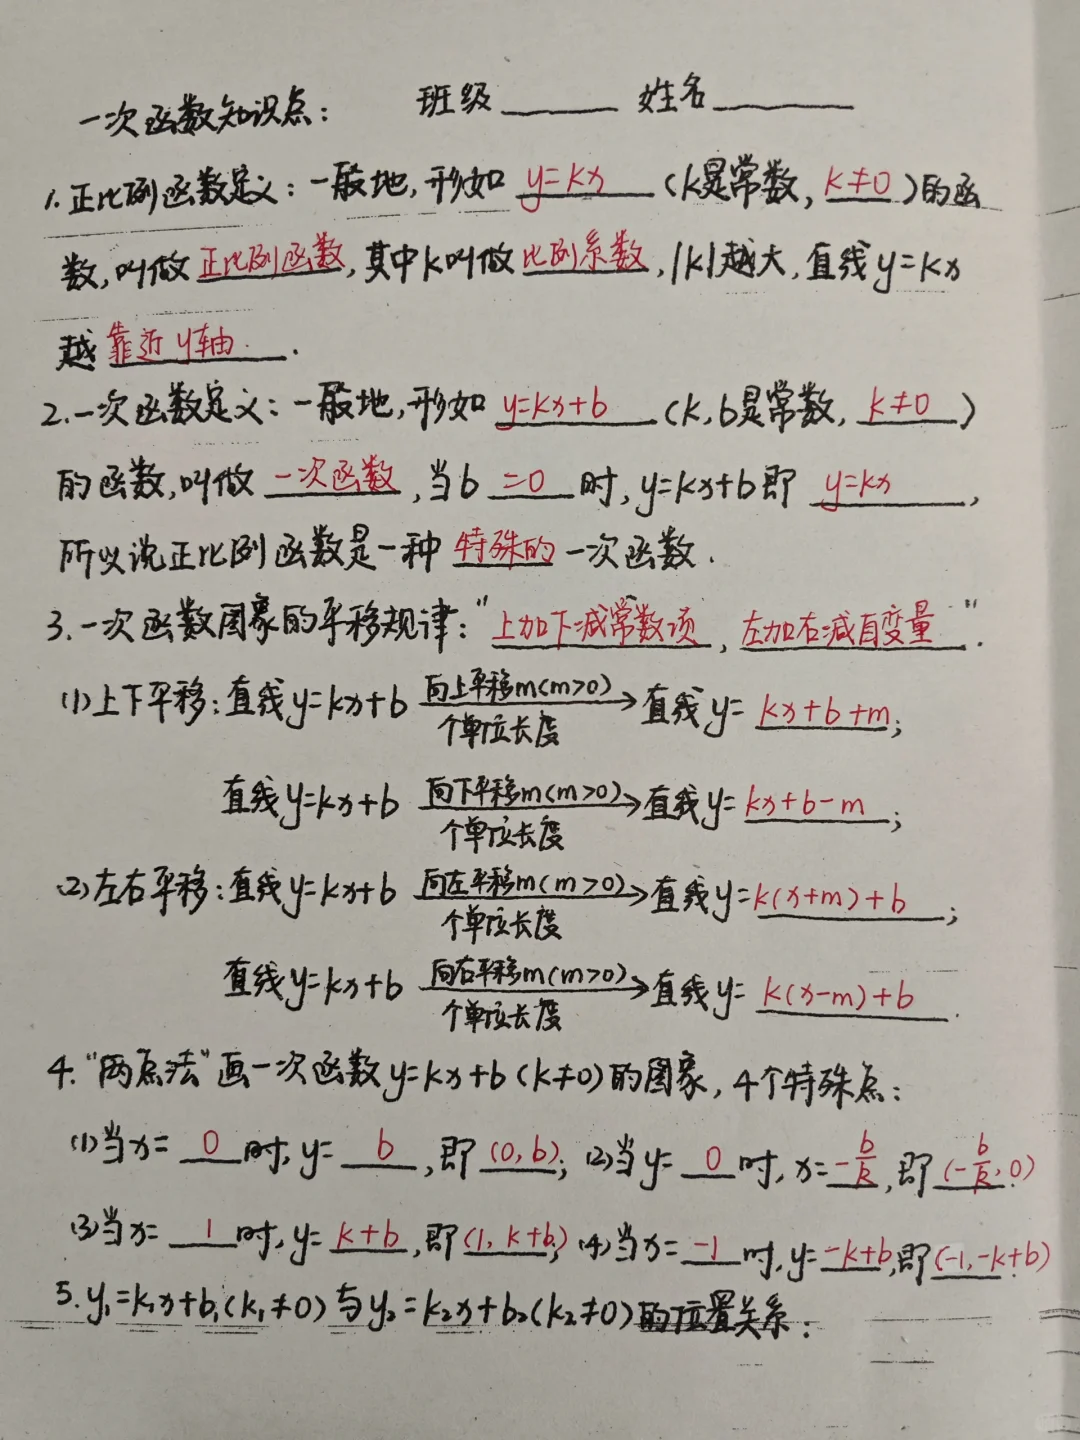 一次函数知识点: 班级______ 姓名______
1.正比例函数定义:一般地,形如 y=kx (k是常数, k≠0 )的函
数,叫做 正比例函数,其中k叫做 比例系数,|k|越大,直线y=kx
越 靠近y轴 .
2.一次函数定义:一般地,形如 y=kx+b (k,b是常数, k≠0 )
的函数,叫做 一次函数 ,当b =0 时,y=kx+b即 y=kx ,
所以说正比例函数是一种 特殊的 一次函数.
3.一次函数图象的平移规律:"上加下减常数项 , 左加右减自变量 ".
(1)上下平移:直线y=kx+b 向上平移m(m>0)个单位长度→直线y= kx+b+m;
直线y=kx+b 向下平移m(m>0)个单位长度→直线y= kx+b-m ;
(2)左右平移:直线y=kx+b 向左平移m(m>0)个单位长度→直线y=k(x+m)+b ;
直线y=kx+b 向右平移m(m>0)个单位长度→直线y= k(x-m)+b .
4."两点法"画一次函数y=kx+b(k≠0)的图象,4个特殊点:
(1)当x= 0 时,y= b ,即 (0,b); (2)当y= 0 时,x=-b/k,即(-b/k,0)
(3)当x= 1 时,y= k+b ,即(1,k+b); (4)当x= -1 时,y=-k+b,即(-1,-k+b).
5.y₁=k₁x+b₁(k₁≠0)与y₂=k₂x+b₂(k₂≠0)的位置关系: